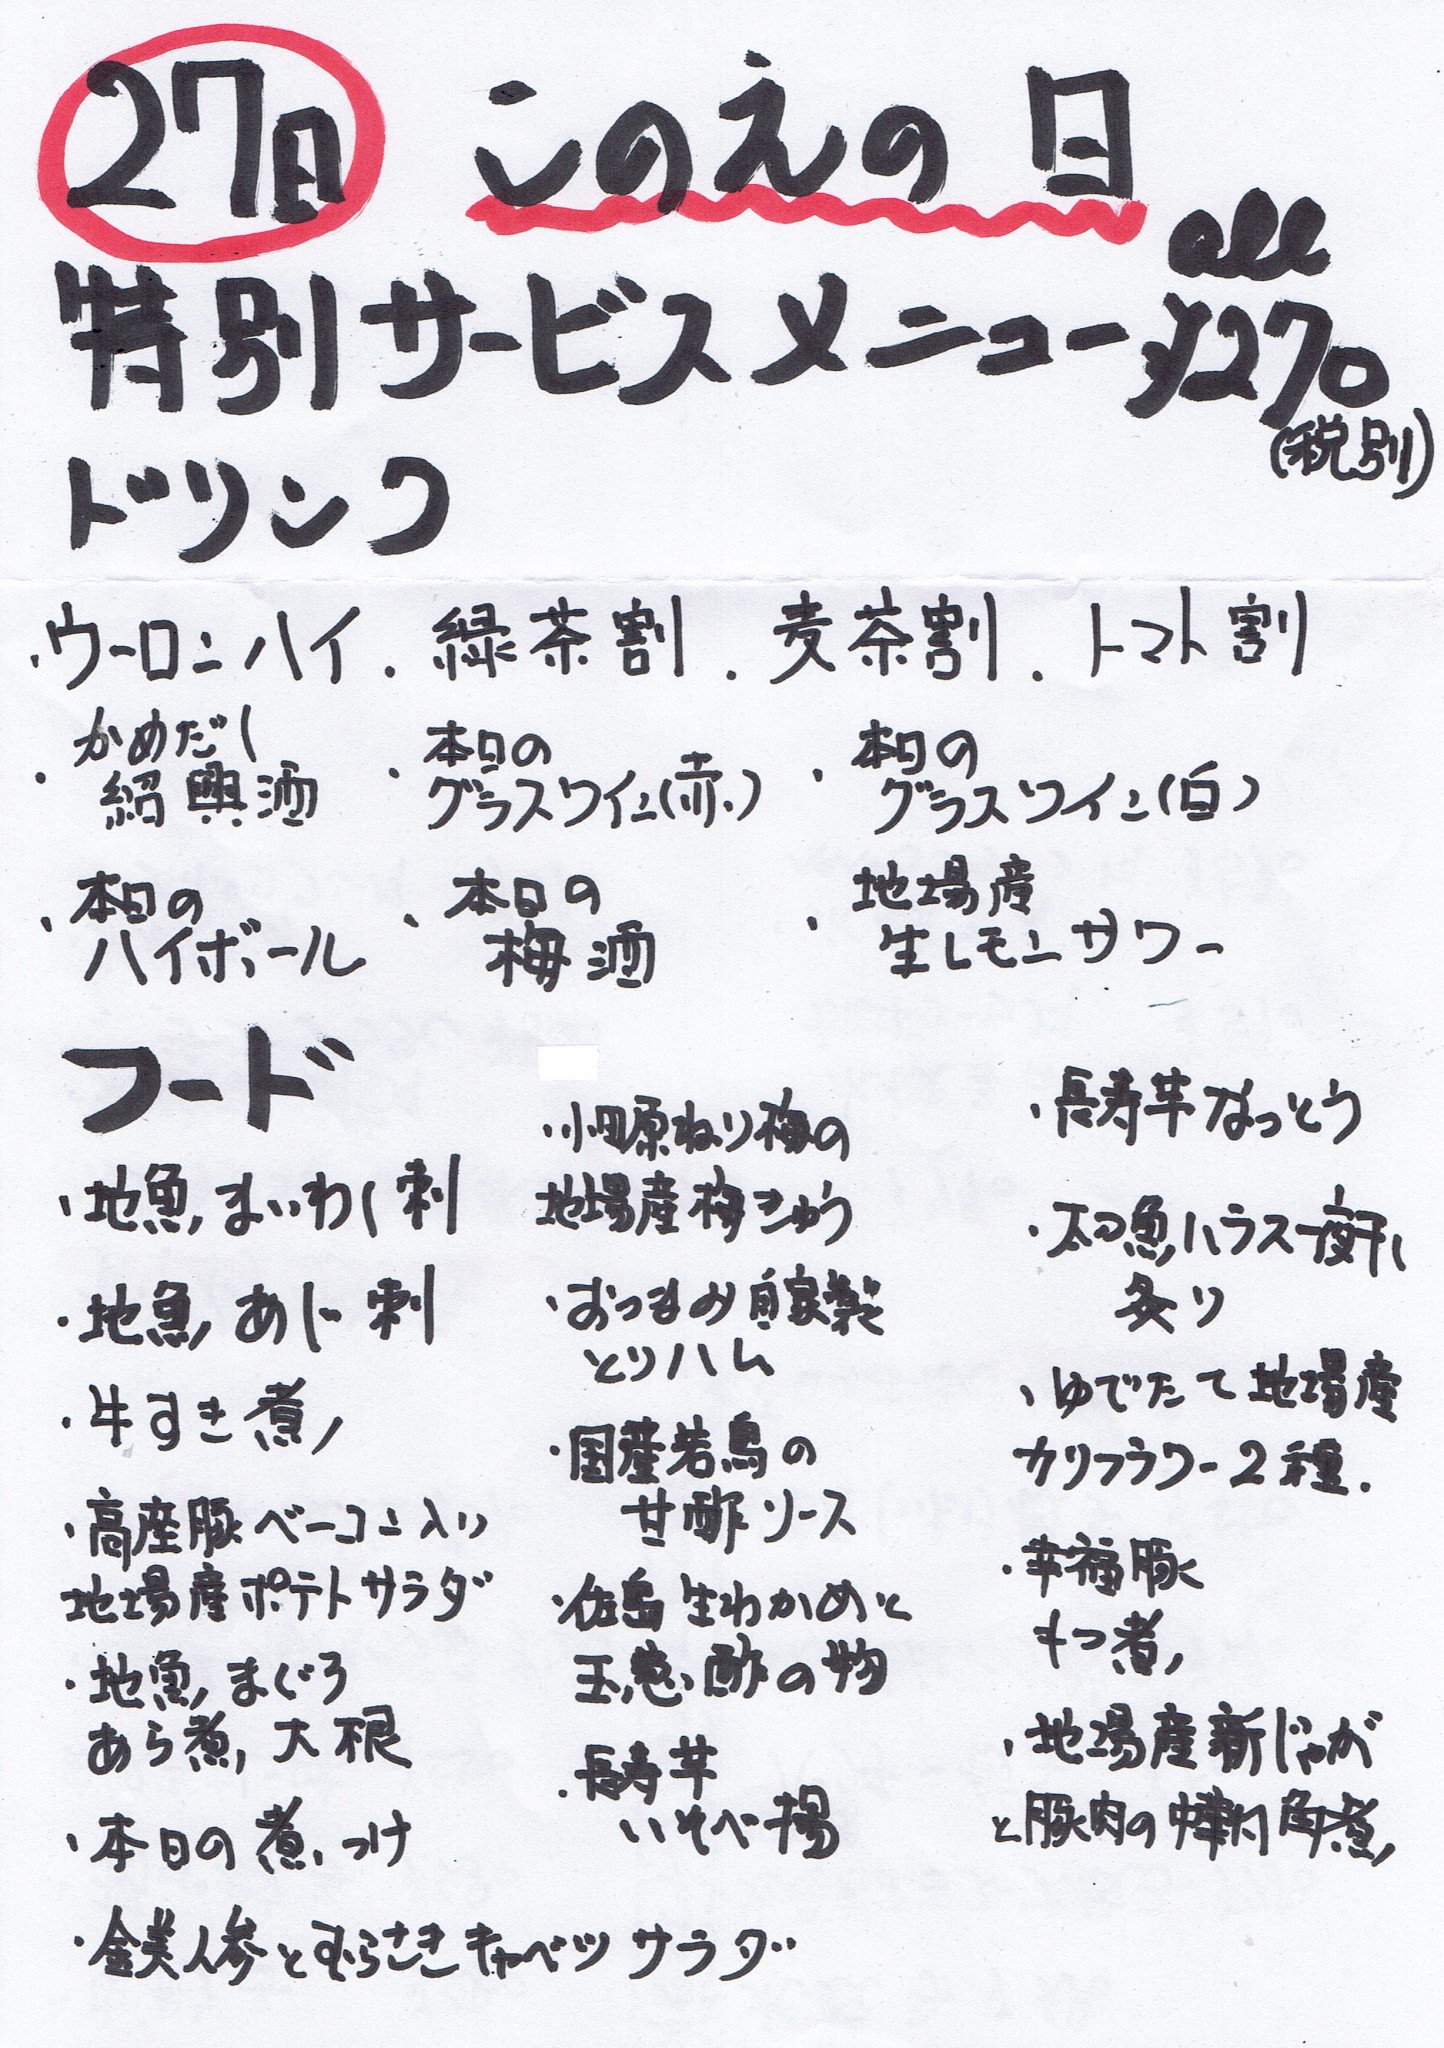 27日 このえの日
特別サービスメニュー all ¥270
(税別)
ドリンク
・ウーロンハイ ・緑茶割 ・麦茶割 ・トマト割
・かめだし
紹興酒
・本日の
グラスワイン(赤)
・本日の
グラスワイン(白)
・本日の
ハイボール
・本日の
梅酒
・地場産
生レモンサワー
フード
・地魚まいわし刺
・地魚あじ刺
・牛すき煮
・高座豚ベーコン入り
地場産ポテトサラダ
・地魚まぐろ
あら煮大根
・本日の煮つけ
・金美人参とむらさきキャベツサラダ
・小田原ねり梅の
地場産梅きゅう
・おつまみ自家製
とりハム
・国産若鳥の
甘酢ソース
・佐島生わかめと
玉葱酢の物
・長寿芋
いそべ揚
・長寿芋なっとう
・太刀魚ハラス一夜干し
炙り
・ゆでたて地場産
カリフラワー2種.
・幸福豚
もつ煮
・地場産新じゃが
と豚肉の中華角煮